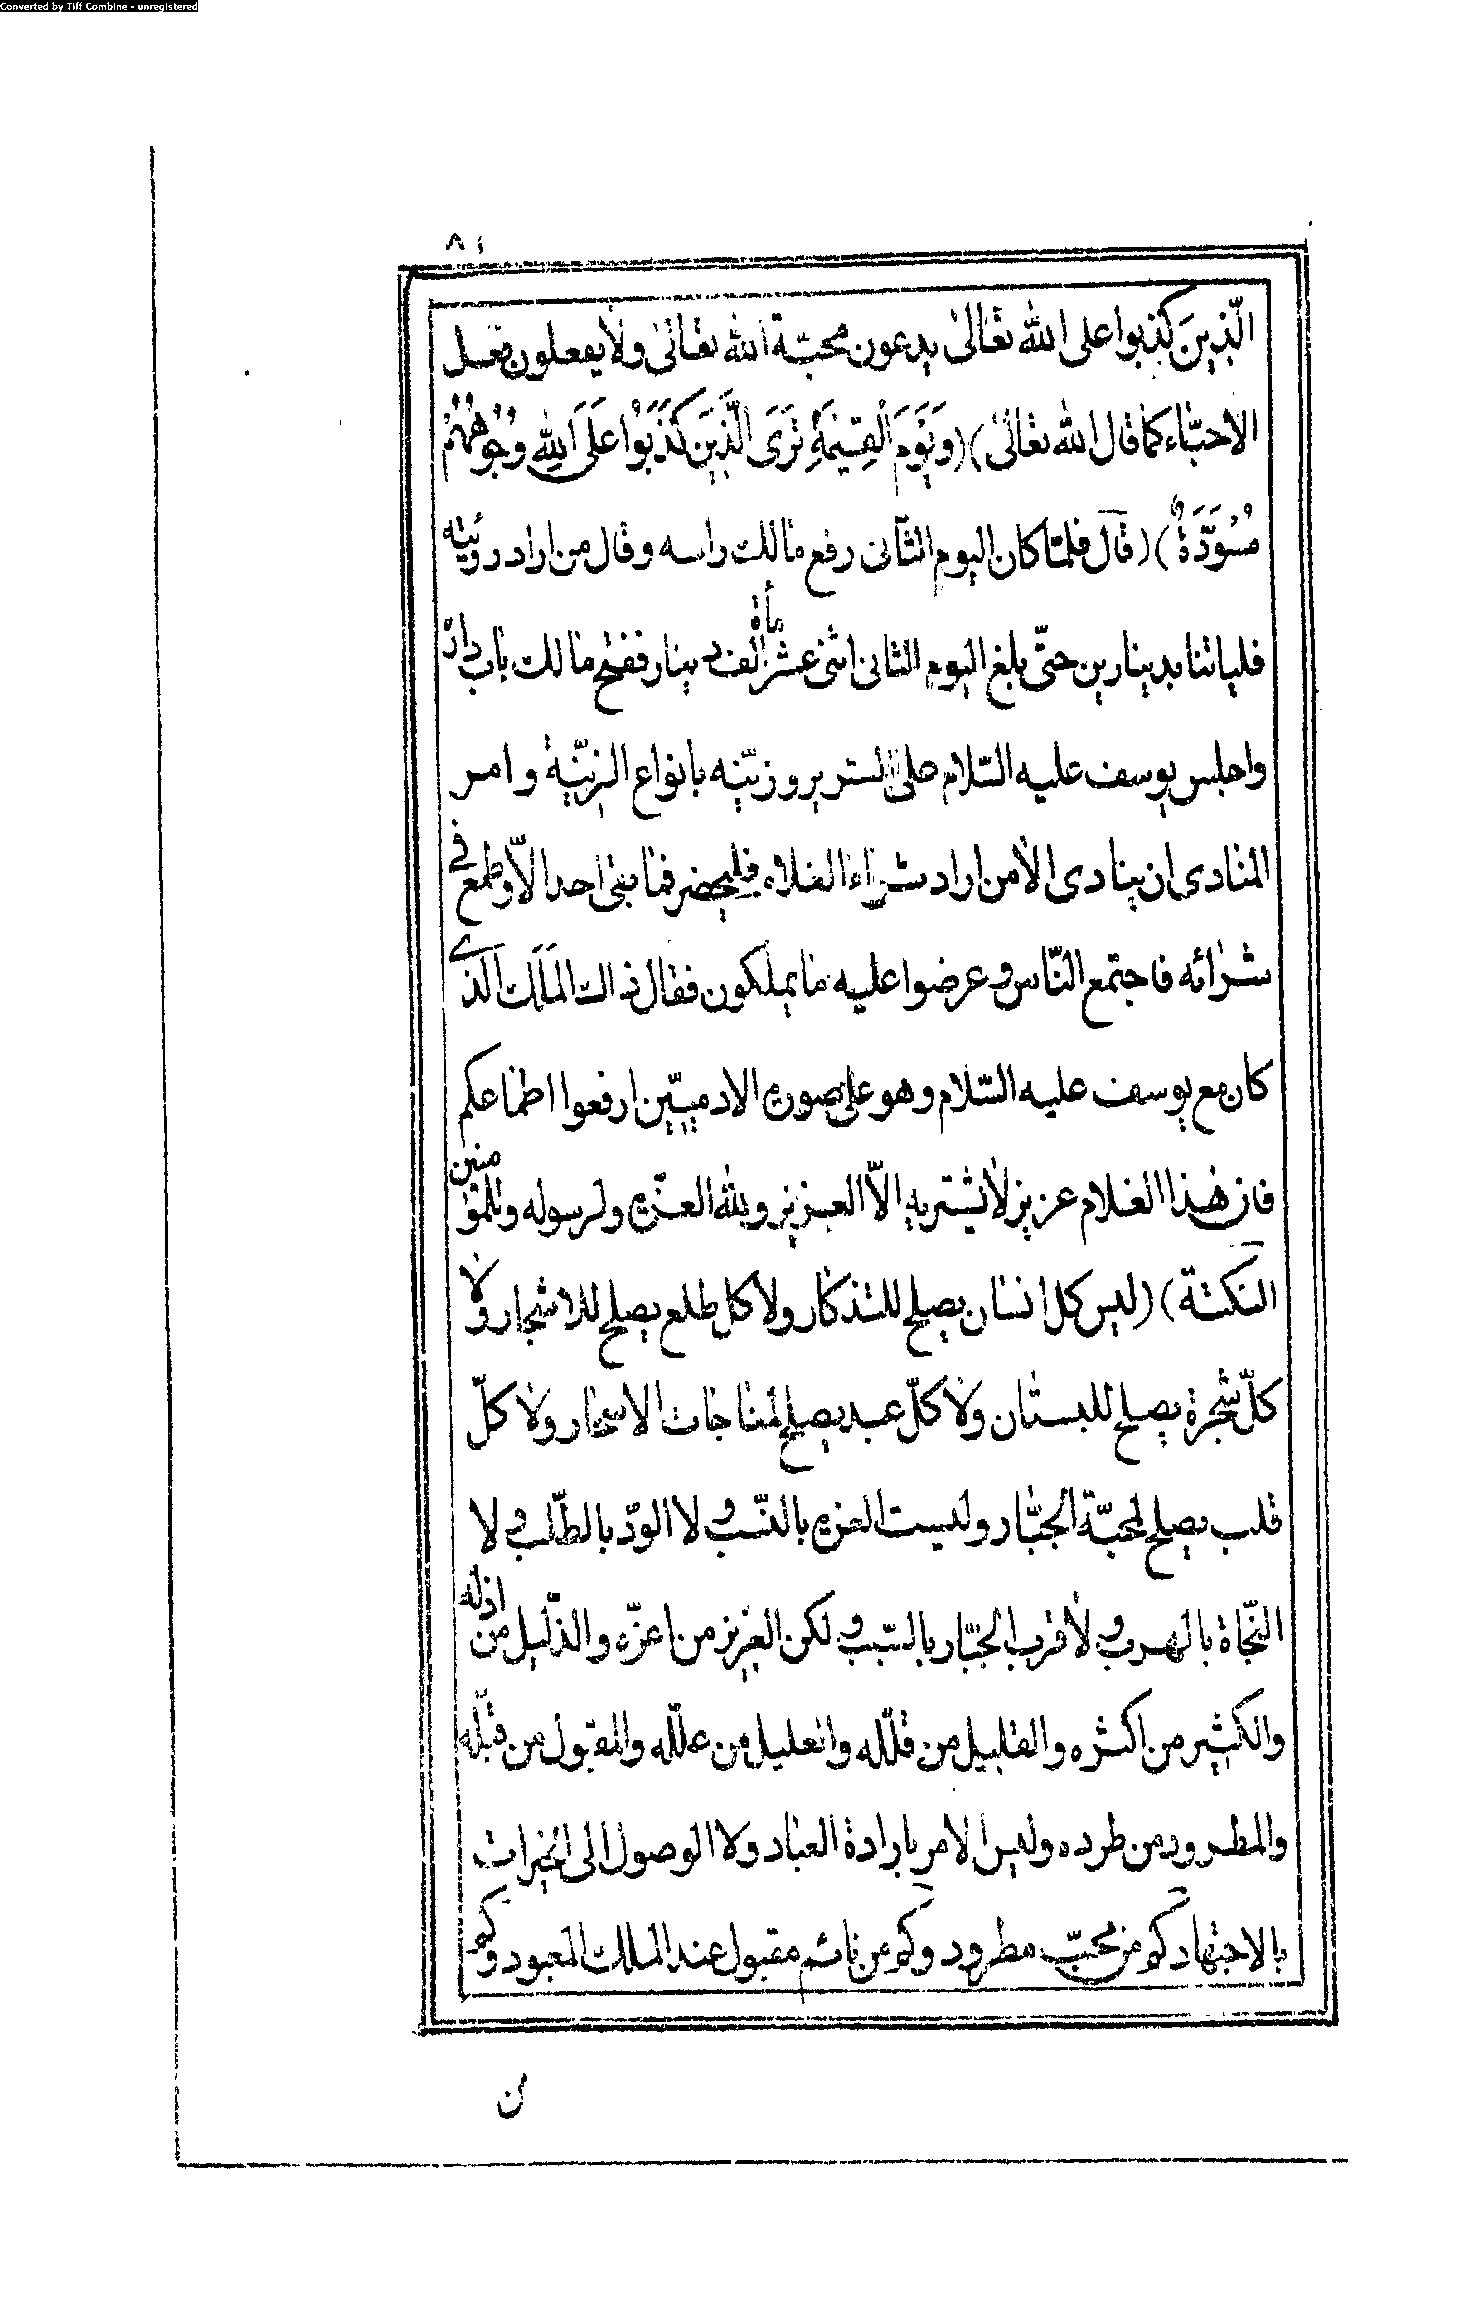 Converted by Tiff Combine - unregistered
٨١
الّذينَ كذبوا على الله تعالىٰ يدعون محبّة الله تعالىٰ ولا يفعلون فعل
الاحبّاء كما قال الله تعالىٰ) (وَيَوْمَ الْقِيٰمَةِ تَرَى الَّذِينَ كَذَبُوْا عَلَى اللهِ وُجُوهُهُمْ
مُسْوَدَّةٌ) (قال فلمّا كان اليوم الثّانى رفع مالك راسه وقال من اراد رؤيته
فلياتنا بدينارين حتّى بلغ اليوم الثانى اثنى عشر مأة الف دينار ففتح مالك باب داره
واجلس يوسف عليه السّلام على السّرير وزيّنه بانواع الزينة وامر
المنادى ان ينادى الا من اراد شراء الغلام فليحضر فما بقى احد الّا وطمع فى
شرائه فاجتمع النّاس وعرضوا عليه ما يملكون فقال ذالك المَلَك الّذى
كان مع يوسف عليه السّلام وهو على صورة الادميّين ارفعوا اطماعكم
فان هٰذا الغلام عزيز لا يشتريه الّا العزيز ولله العزّة ولرسوله وللمؤمنين
النكتة) (ليس كل انسان يصلح للتذكار ولا كل طلع يصلح للاشجار ولا
كلّ شجرة يصلح للبستان ولا كلّ عبد يصلح لمناجات الاسحار ولا كلّ
قلب يصلح لمحبّة الجبّار وليست العزة بالنّسب ولا الودّ بالطّلب ولا
النّجاة بالهرب ولا قرب الجبّار بالسّبب ولكن العزيز من اعزّه والذّليل من اذله
والكثير من اكثره والقليل من قلّله والعليل من علّله والمقبول من قبّله
والمطرود من طرده وليس الامر بارادة العباد ولا الوصول الى الخيرات
بالاجتهاد كم من محبّ مطرود وكم من نائم مقبول عند الملك المعبود وكم
من